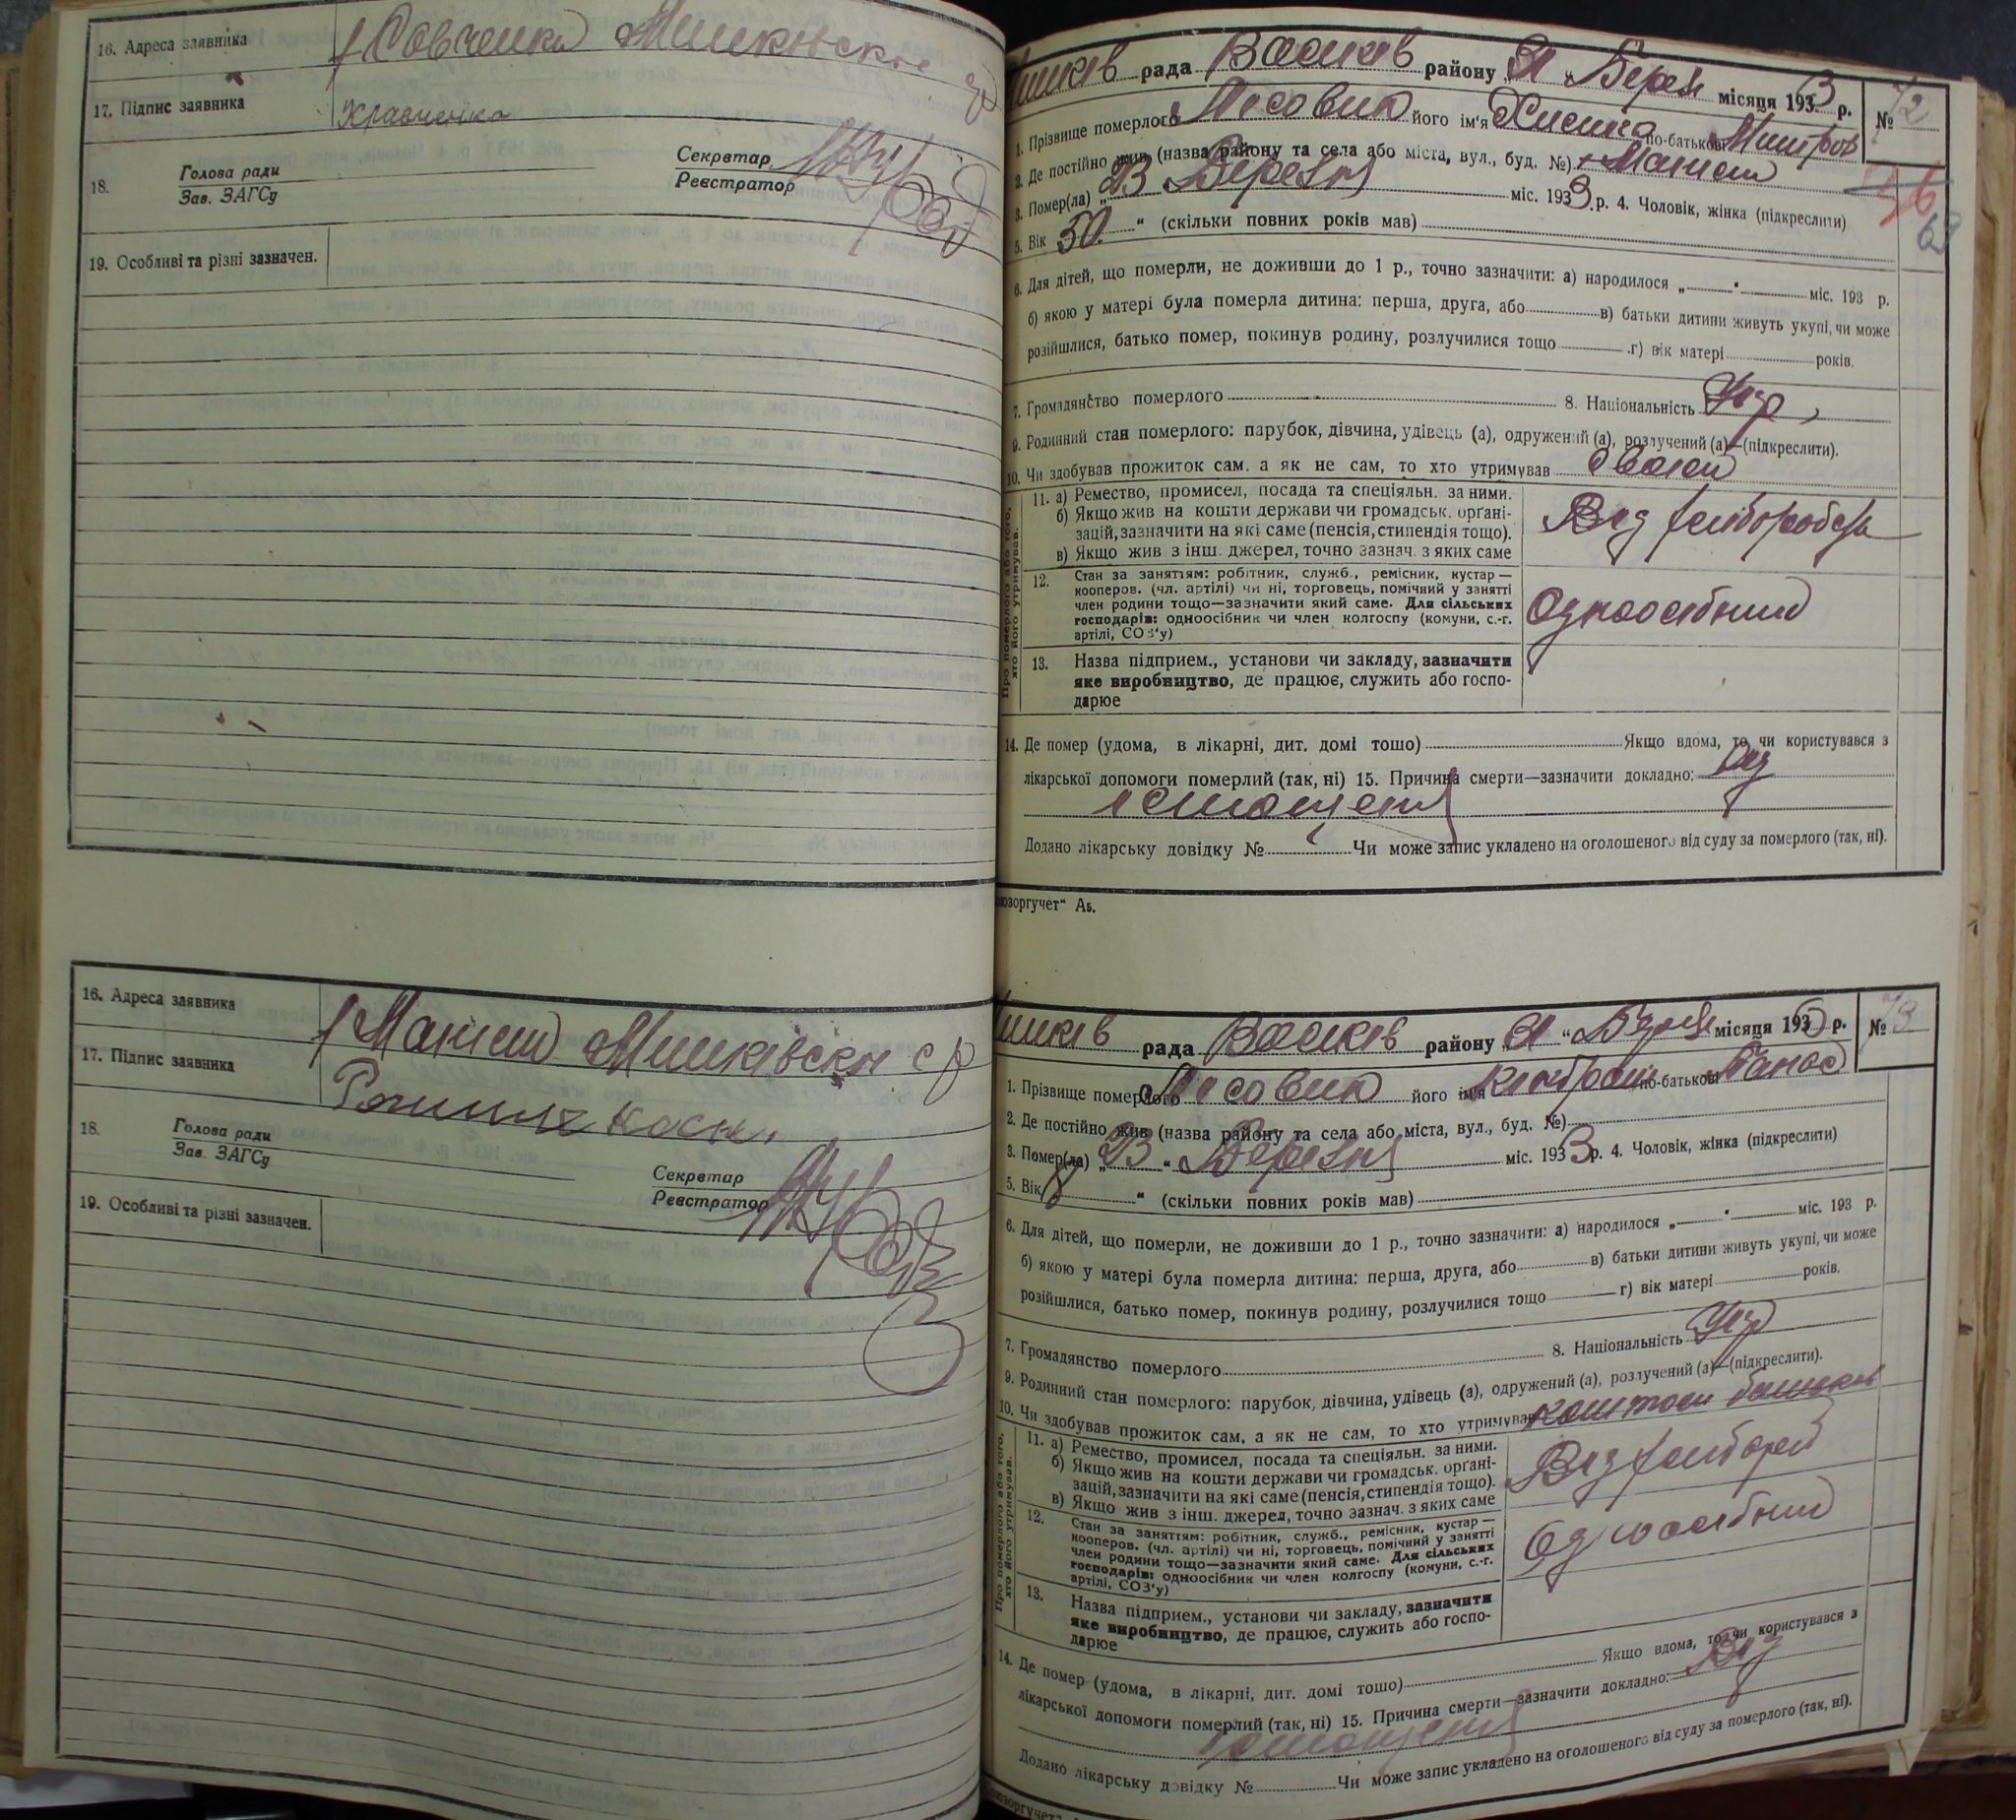 16. Адреса заявника
17. Підпис заявника
Кравченко
18. Голова ради
Зав. ЗАГСу
Секретар
Реєстратор
19. Особливі та різні зазначен.
рада району „31 “ місяця 1933 р. №72
1. Прізвище померлого Лісовий його ім'я по-батькові
2. Де постійно жив (назва району та села або міста, вул., буд. №)
3. Помер(ла) „23 Березня міс. 1933 р. 4. Чоловік, жінка (підкреслити)
5. Вік 50 “ (скільки повних років мав)
6. Для дітей, що померли, не доживши до 1 р., точно зазначити: а) народилося „ “ міс. 193 р.
б) якою у матері була померла дитина: перша, друга, або в) батьки дитини живуть укупі, чи може
розійшлися, батько помер, покинув родину, розлучилися тощо г) вік матері років.
7. Громадянство померлого 8. Національність Укр
9. Родинний стан померлого: парубок, дівчина, удівець (а), одружений (а), розлучений (а)—(підкреслити).
10. Чи здобував прожиток сам, а як не сам, то хто утримував
Про померлого або того, хто його утримував.
11. а) Ремество, промисел, посада та спеціяльн. за ними.
б) Якщо жив на кошти держави чи громадськ. орґані-
зацій, зазначити на які саме (пенсія, стипендія тощо).
в) Якщо жив з інш. джерел, точно зазнач. з яких саме
Від хлібороб
12. Стан за заняттям: робітник, служб., ремісник, кустар —
кооперов. (чл. артілі) чи ні, торговець, помічний у занятті
член родини тощо—зазначити який саме. Для сільських
господарів: одноосібник чи член колгоспу (комуни, с.-г.
артілі, СОЗ'у)
Одноосібник
13. Назва підприєм., установи чи закладу, зазначити
яке виробництво, де працює, служить або госпо-
дарює
14. Де помер (удома, в лікарні, дит. домі тощо) Якщо вдома, то чи користувався з
лікарської допомоги померлий (так, ні) 15. Причина смерти—зазначити докладно: Від
істощения
Додано лікарську довідку № Чи може запис укладено на оголошеного від суду за померлого (так, ні).
16. Адреса заявника
17. Підпис заявника
18. Голова ради
Зав. ЗАГСу
Секретар
Реєстратор
19. Особливі та різні зазначен.
рада району „31 “ місяця 193 р. №73
1. Прізвище померлого Лісовий його ім'я по-батькові Панас
2. Де постійно жив (назва району та села або міста, вул., буд. №)
3. Помер(ла) „23 “ Березня міс. 1933 р. 4. Чоловік, жінка (підкреслити)
5. Вік 8 “ (скільки повних років мав)
6. Для дітей, що померли, не доживши до 1 р., точно зазначити: а) народилося „ “ міс. 193 р.
б) якою у матері була померла дитина: перша, друга, або в) батьки дитини живуть укупі, чи може
розійшлися, батько помер, покинув родину, розлучилися тощо г) вік матері років.
7. Громадянство померлого 8. Національність Укр
9. Родинний стан померлого: парубок, дівчина, удівець (а), одружений (а), розлучений (а)—(підкреслити).
10. Чи здобував прожиток сам, а як не сам, то хто утримував коштом батьків
Про померлого або того, хто його утримував.
11. а) Ремество, промисел, посада та спеціяльн. за ними.
б) Якщо жив на кошти держави чи громадськ. орґані-
зацій, зазначити на які саме (пенсія, стипендія тощо).
в) Якщо жив з інш. джерел, точно зазнач. з яких саме
Від хлібороб
12. Стан за заняттям: робітник, служб., ремісник, кустар —
кооперов. (чл. артілі) чи ні, торговець, помічний у занятті
член родини тощо—зазначити який саме. Для сільських
господарів: одноосібник чи член колгоспу (комуни, с.-г.
артілі, СОЗ'у)
Одноосібник
13. Назва підприєм., установи чи закладу, зазначити
яке виробництво, де працює, служить або госпо-
дарює
14. Де помер (удома, в лікарні, дит. домі тощо) Якщо вдома, то чи користувався з
лікарської допомоги померлий (так, ні) 15. Причина смерти—зазначити докладно: Від
істощения
Додано лікарську довідку № Чи може запис укладено на оголошеного від суду за померлого (так, ні).